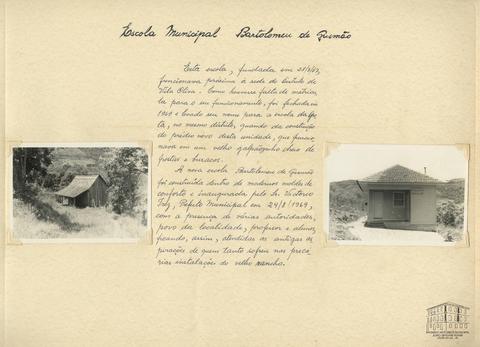 Escola Municipal Bartolomeu de Gusmão
Esta escola, fundada em
funcionava próxima à sede do distrito de
Vila Oliva. Como houvesse falta de matrícu-
la para o seu funcionamento, foi fechada em
1969 e levado seu nome para a escola da
no mesmo distrito, quando da construção
do prédio novo desta unidade, que funcio-
nava em um velho galpãozinho cheio de
frestas e buracos.
A nova escola Bartolomeu de Gusmão
foi construída dentro de modernos moldes de
conforto e inaugurada pelo Sr. Victorio
Trez, Prefeito Municipal em 24/8/1969,
com a presença de várias autoridades,
povo da localidade, professor e alunos,
ficando, assim, atendidas as antigas as-
pirações de quem tanto sofreu nas precá-
rias instalações do velho rancho.